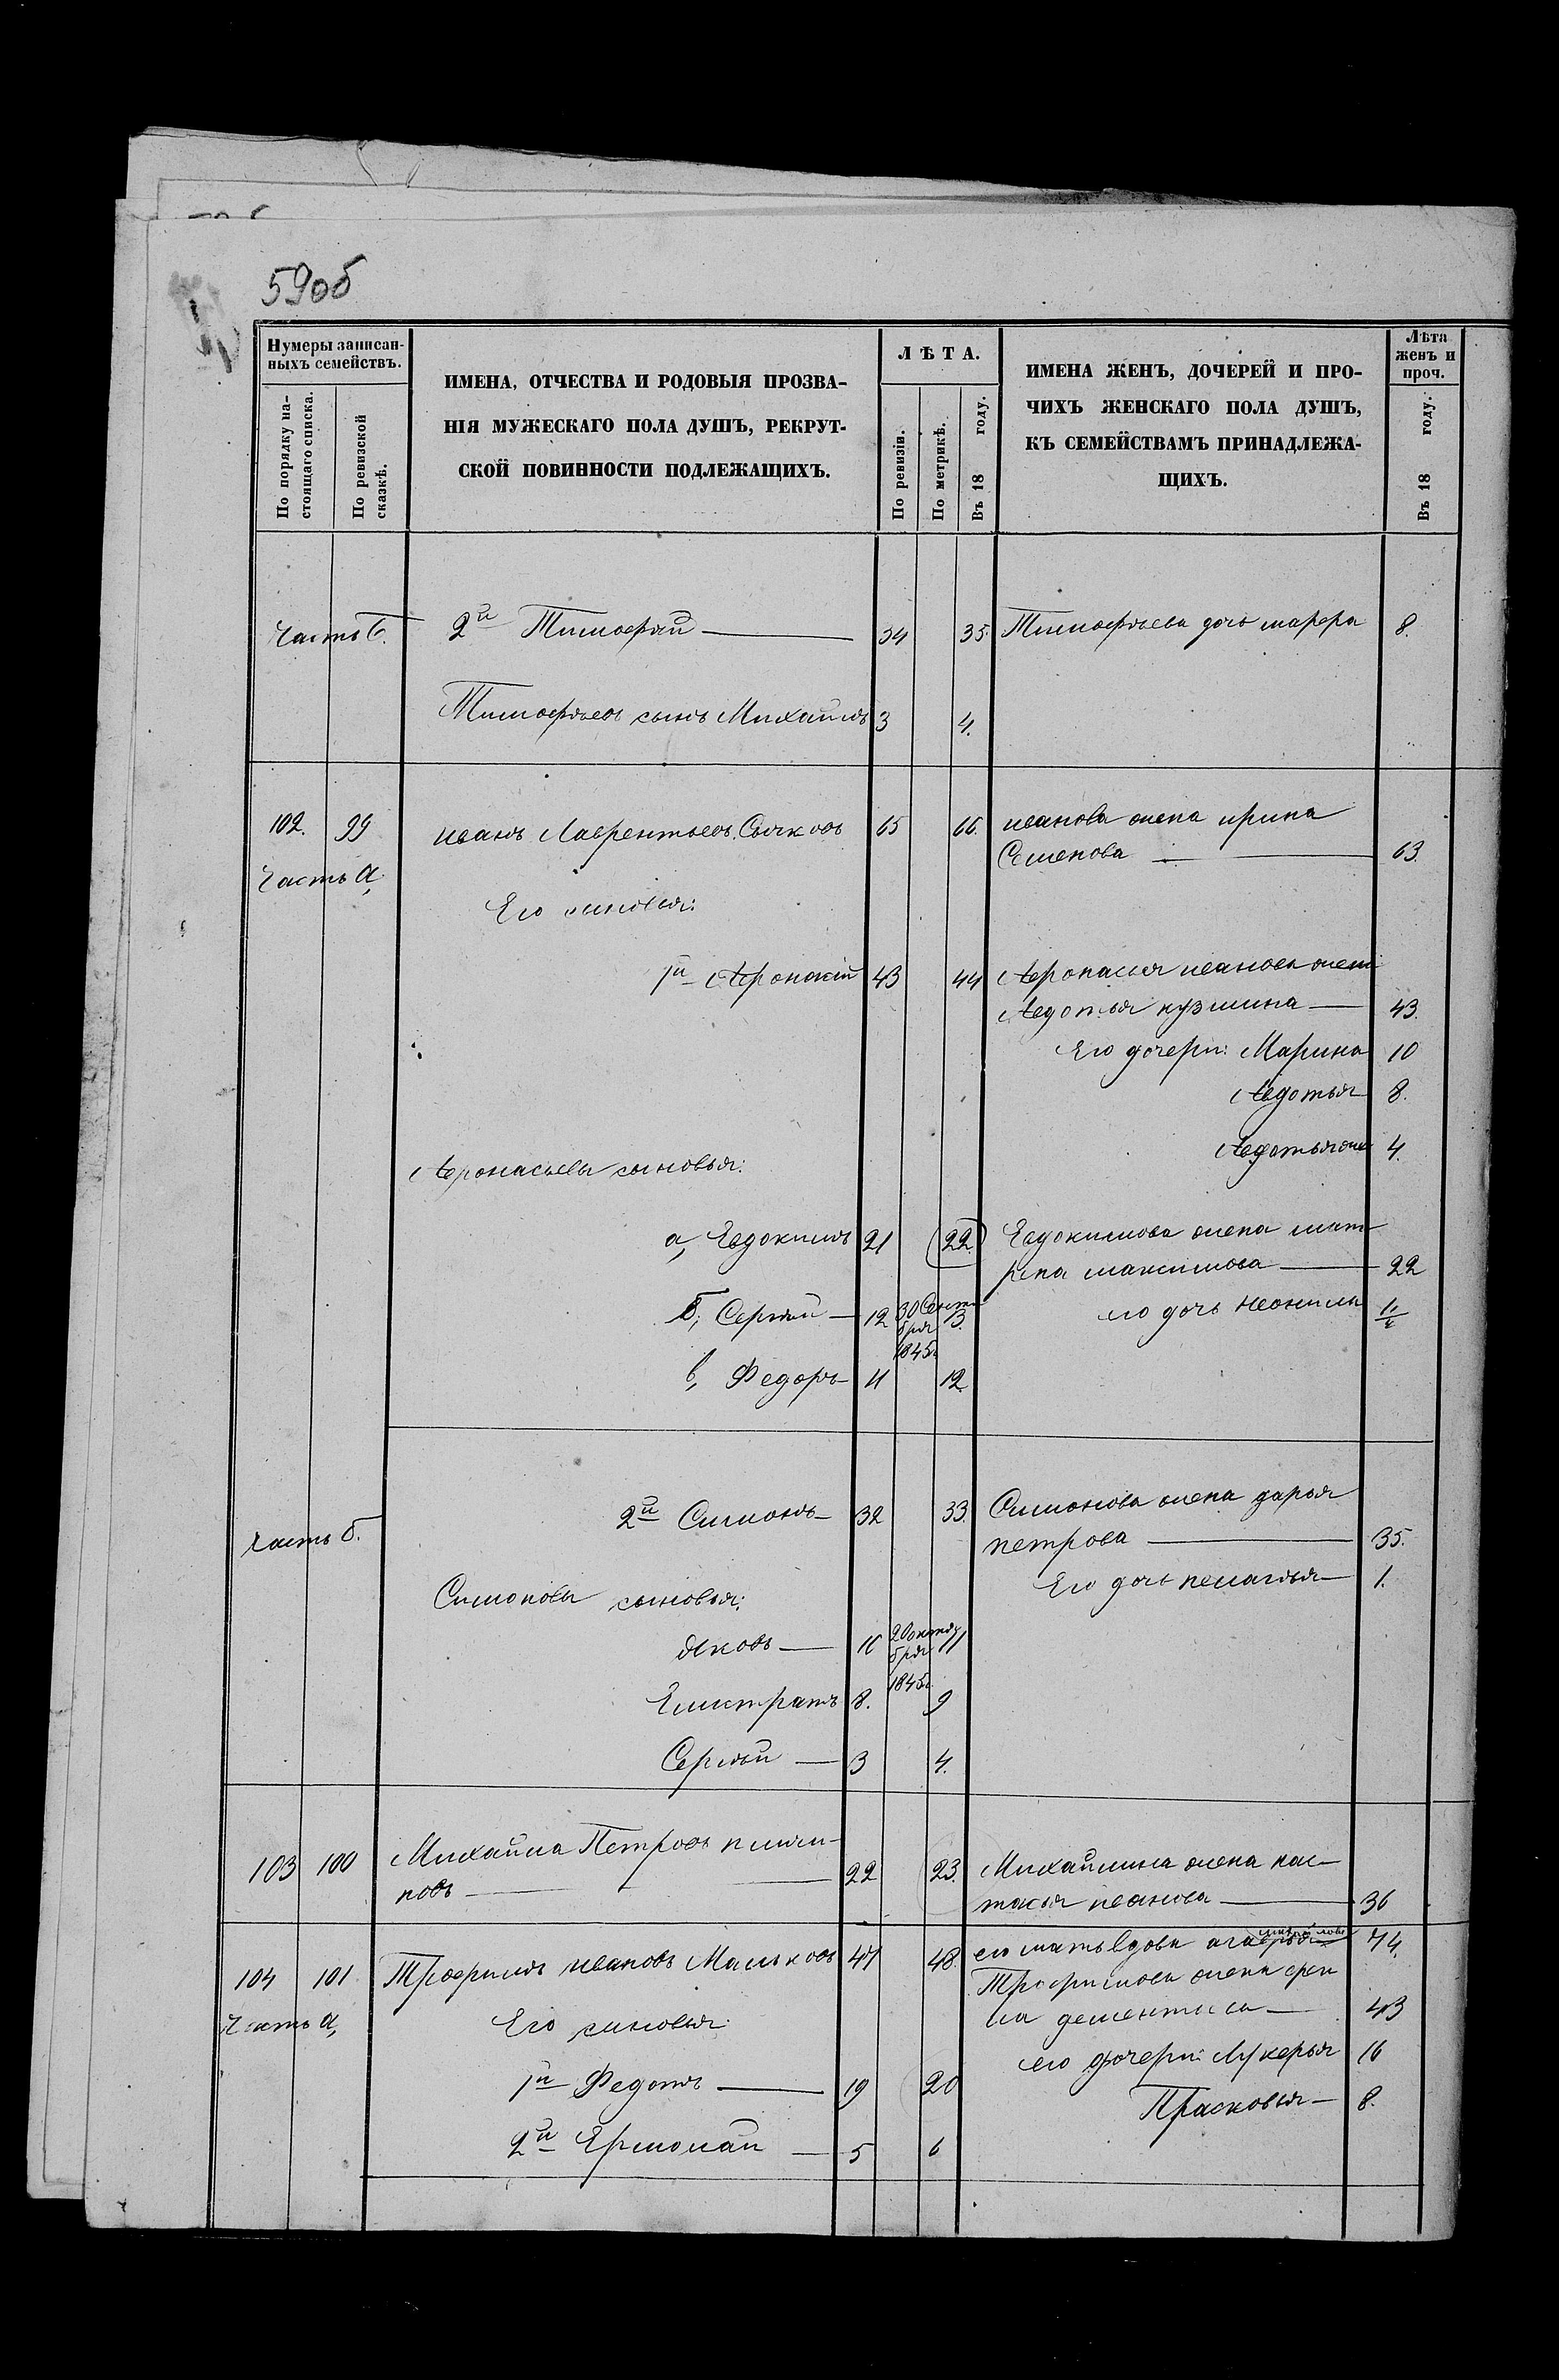 590б
Нумеры записан-
ныхъ семействъ.
По порядку на-
стоящаго списка.
По ревизской
сказкѣ.
ИМЕНА, ОТЧЕСТВА И РОДОВЫЯ ПРОЗВА-
НІЯ МУЖЕСКАГО ПОЛА ДУШЪ, РЕКРУТ-
СКОЙ ПОВИННОСТИ ПОДЛЕЖАЩИХЪ.
ЛѢТА.
По ревизіи.
По метрикѣ.
Въ 18 году.
ИМЕНА ЖЕНЪ, ДОЧЕРЕЙ И ПРО-
ЧИХЪ ЖЕНСКАГО ПОЛА ДУШЪ,
КЪ СЕМЕЙСТВАМЪ ПРИНАДЛЕЖА-
ЩИХЪ.
Лѣта
женъ и
проч.
Въ 18 году.
Часть б. 2й Тимофѣй — 34 35. Тимофѣева дочь марфа 8.
Тимофѣевъ сынъ Михаилъ 3 4.
102. 99 иванъ Лаврентьевъ Сычковъ 65 66. иванова жена ирина
Семенова — 63.
Часть а.
Его сыновья:
1й Афонасій 43 44 Афонасья иванова жена
Авдотья кузмина — 43.
Его дочери: Марина 10
Авдотья 8.
Авдотья 4.
Афонасьевы сыновья:
а, Евдокимъ 21 (22) Евдокимова жена мат-
рена максимова — 22
б, Сергѣй — 12 30 Сентя-
бря
1845г. 13. его дочь неонила
в, Федоръ 11 12
Часть б. 2й Симонъ — 32 33. Симонова жена дарья
петрова — 35.
Его дочь пелагѣя — 1.
Симоновы сыновья:
Яковъ — 10 20 октя-
бря
1845г. 11
Елистратъ 8. 9
Сергѣй — 3 4.
103 100 Михаила Петровъ
новъ — 22 23. Михайлина жена нас-
тасья иванова — 36
104 101 Трофимъ ивановъ Мальковъ 47 48. его мать вдова 74.
Трофимова жена
дементьева — 43
Часть а,
Его сыновья:
его дочери: Лукерья 16
1й Федотъ — 19 20
Прасковья — 8.
2й Ермолай — 5 6